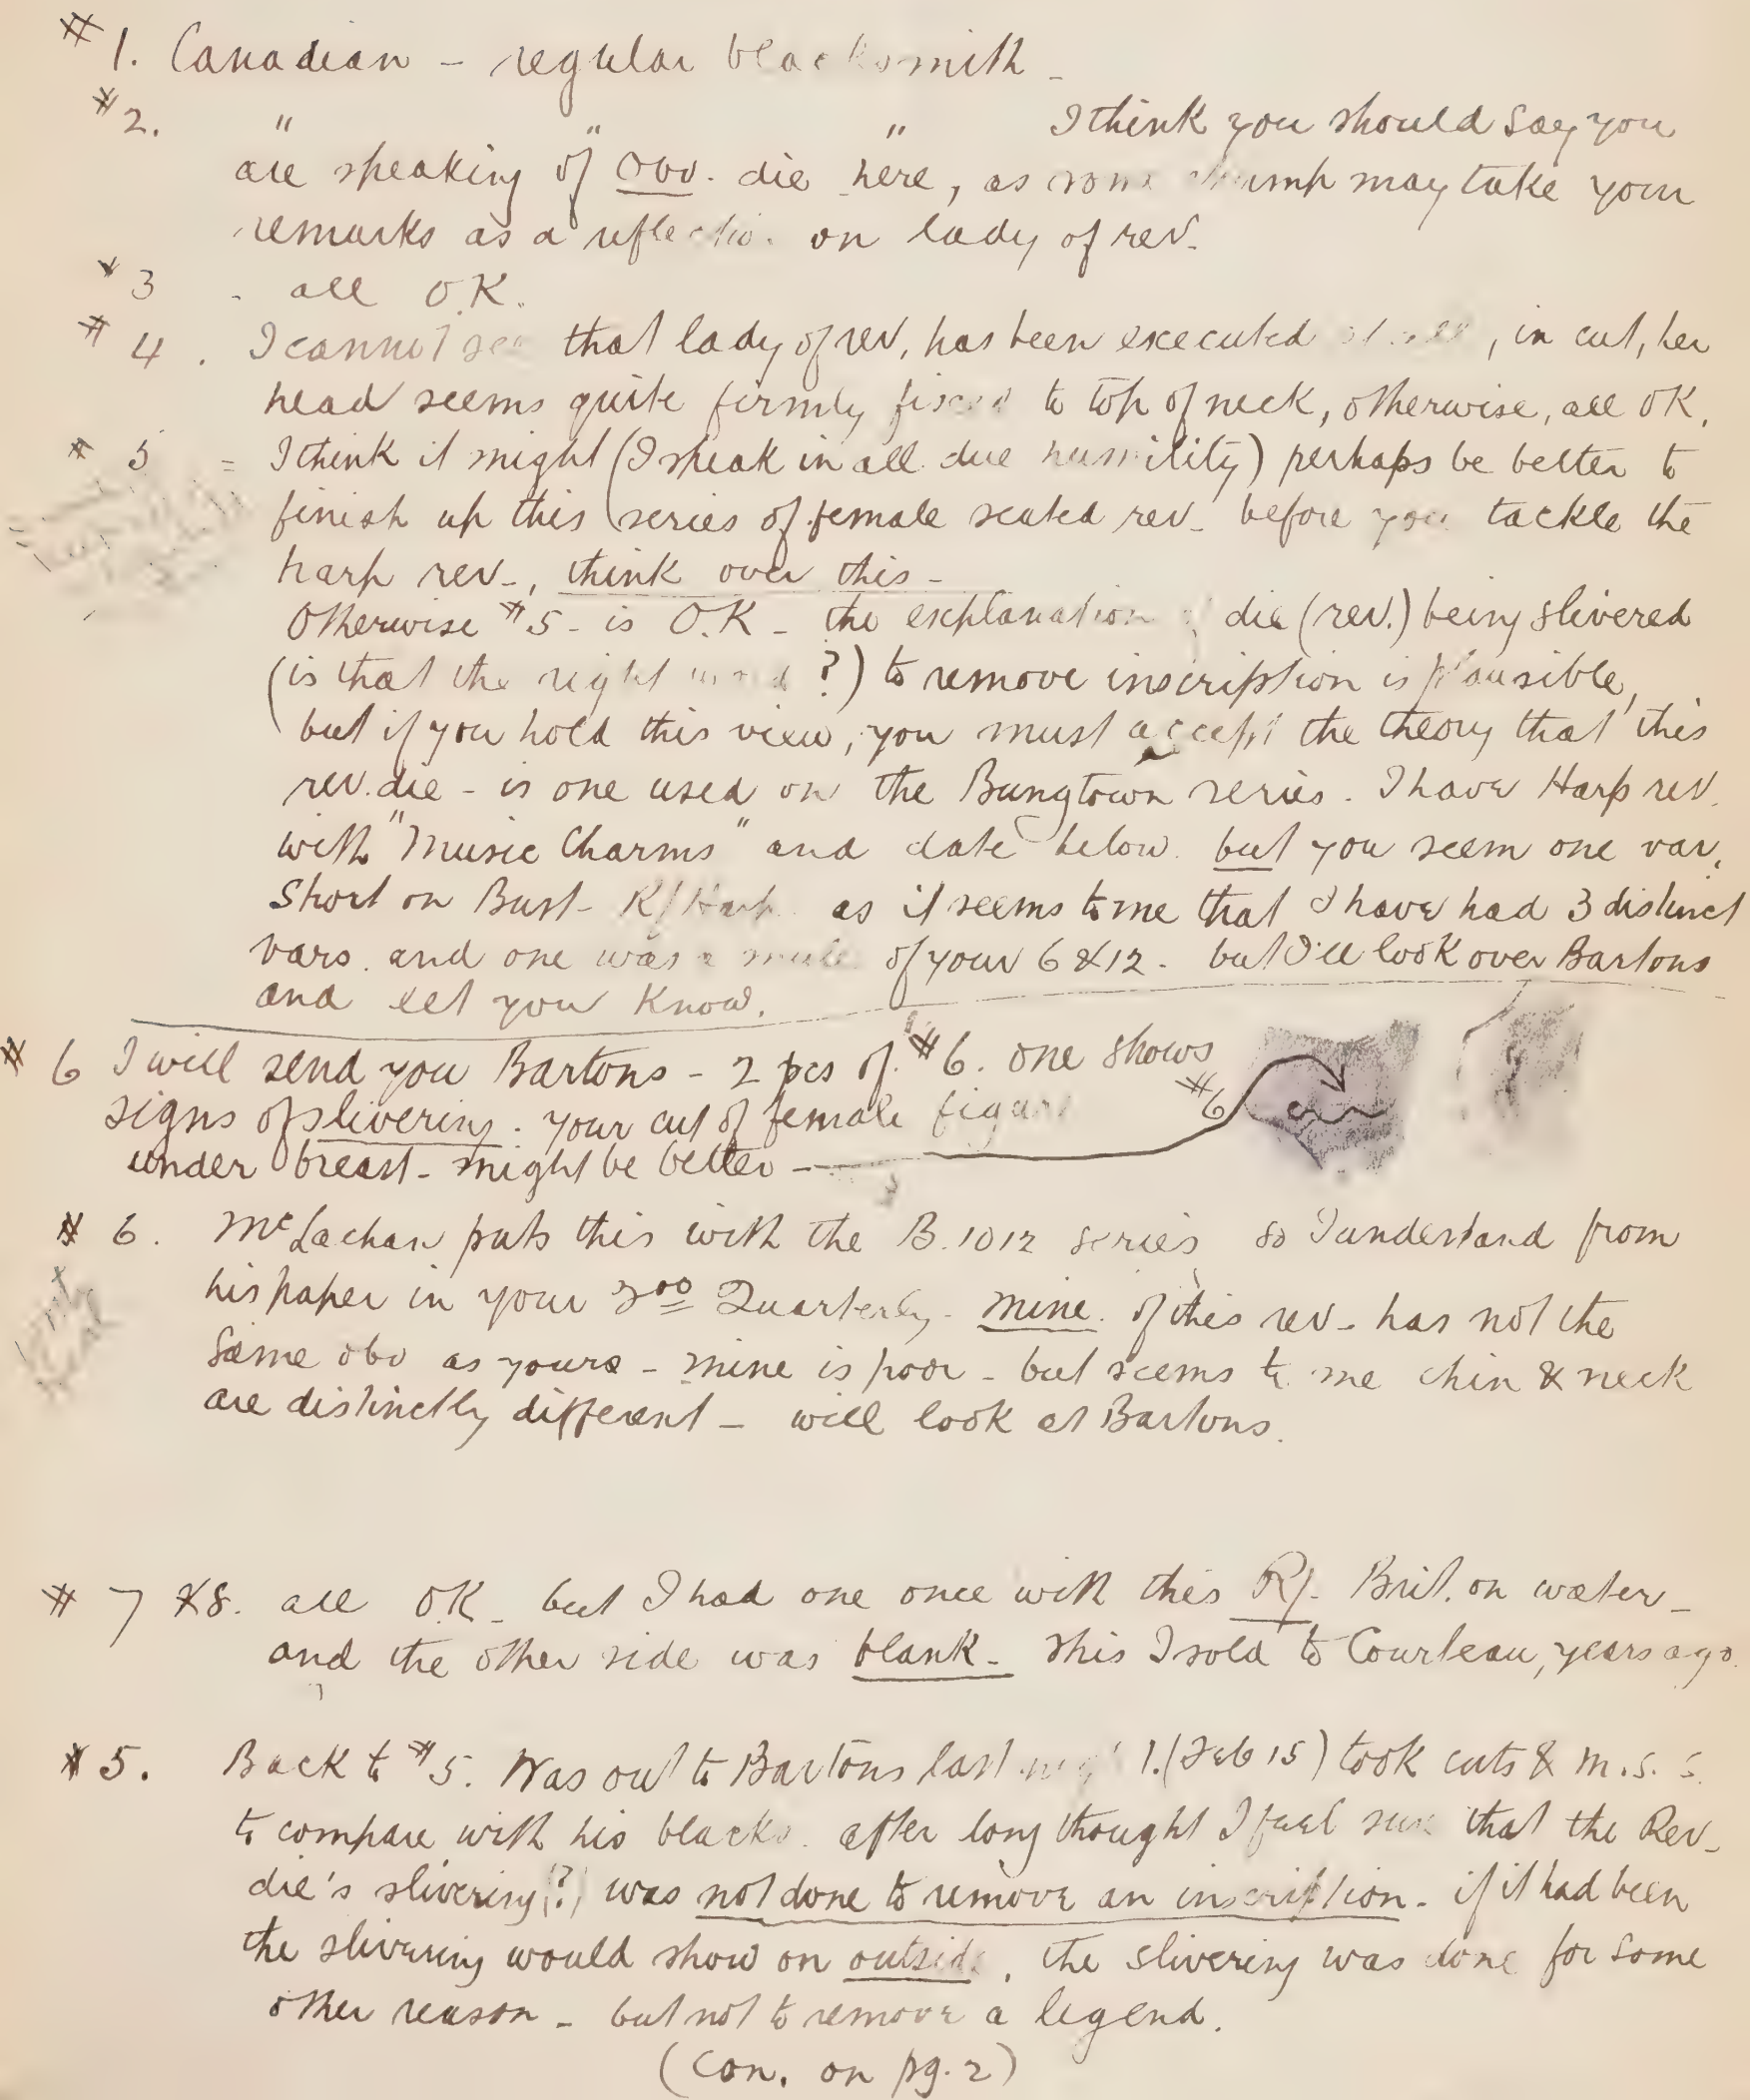 #1. Canadian - regular blacksmith -
#2. " " " I think you should say you
are speaking of Obv. die here, as some chump may take your
remarks as a reflection on lady of rev.
#3 - all O.K.
#4. I cannot see that lady of rev, has been executed at all, in cut, her
head seems quite firmly fixed to top of neck, otherwise, all OK.
#5 = I think it might (I speak in all due humility) perhaps be better to
finish up this series of female seated rev- before you tackle the
harp rev-, think over this -
Otherwise #5- is O.K - the explanation of die (rev.) being slivered
(is that the right word?) to remove inscription is plausible,
but if you hold this view, you must accept the theory that this
rev. die - is one used on the Bungtown series. I have Harp rev.
with "Music Charms" and date below. but you seem one var.
short on Bust- R/ Harp as it seems to me that I have had 3 distinct
vars. and one was a mule of your 6 & 12 - but I'll look over Bartons
and let you know.
#6 I will send you Bartons - 2 pcs of #6. one shows
signs of slivering. your cut of female figure
under breast - might be better -
#6
#6. McLachan puts this with the B.1012 series, so I understand from
his paper in your Quarterly - mine of this rev - has not the
same obv as yours - mine is poor - but seems to me chin & neck
are distinctly different - will look at Bartons.
#7 & 8. all O.K - but I had one once with this R/. Brit. on water -
and the other side was blank - This I sold to Courteau, years ago.
#5. Back to #5. Was out to Bartons last night. (Feb 15) took cuts & M.S.S.
to compare with his blacks. after long thought I feel sure that the Rev-
die's slivering (?) was not done to remove an inscription - if it had been
the slivering would show on outside, the slivering was done for some
other reason - but not to remove a legend.
(Con. on pg. 2)